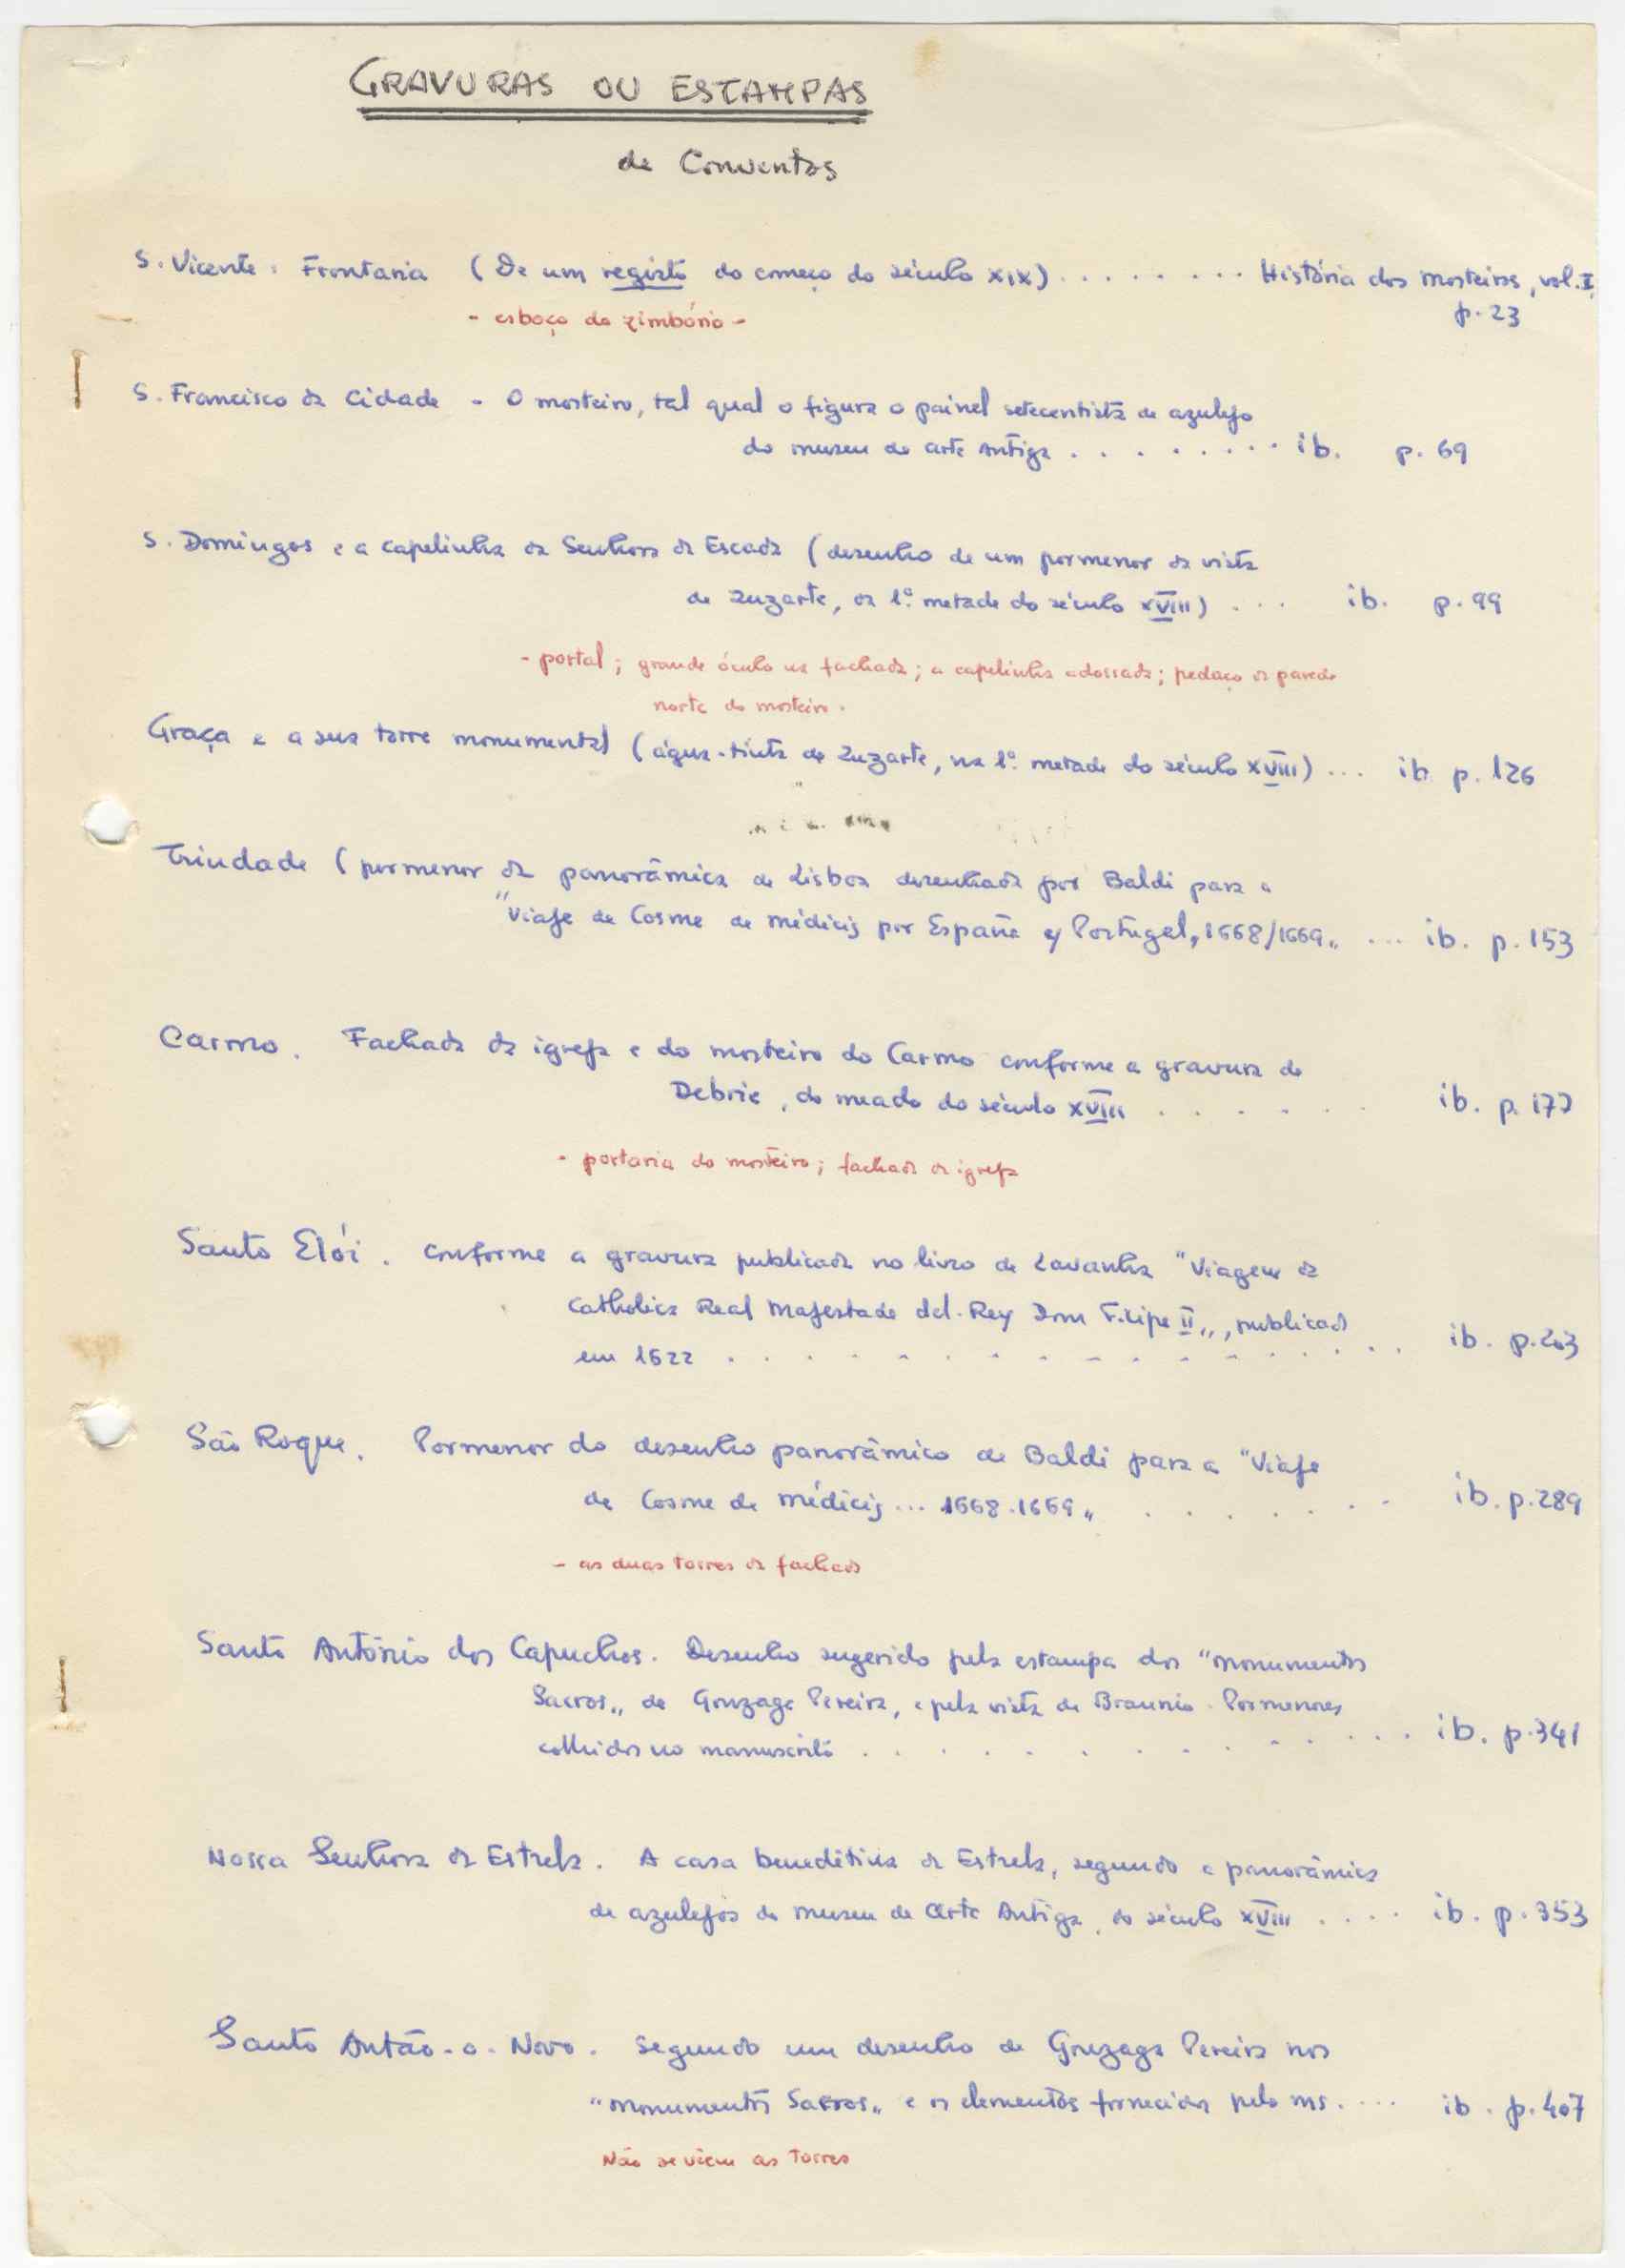 GRAVURAS OU ESTAMPAS
de Conventos
S. Vicente. Frontaria (De um registo do começo do século XIX) ........ História dos mosteiros, vol. I,
p. 23
- esboço do zimbório -
S. Francisco da Cidade - O mosteiro, tal qual o figura o painel setecentista de azulejo
do museu de arte Antiga ......... ib. p. 69
S. Domingos e a capelinha da Senhora da Escada (desenho de um pormenor da vista
de Zuzarte, da 1ª metade do século XVIII) ... ib. p. 99
- portal; grande óculo na fachada; a capelinha adossada; pedaço da parede
norte do mosteiro.
Graça e a sua torre monumental (água-tinta de Zuzarte, na 1ª metade do século XVIII) ... ib p. 126
Trindade (pormenor da panorâmica de Lisboa desenhada por Baldi para a
"Viaje de Cosme de Médicis por España y Portugal, 1668/1669" ... ib. p. 153
Carmo. Fachada da igreja e do mosteiro do Carmo conforme a gravura de
Debrie, do meado do século XVIII ...... ib. p. 177
- portaria do mosteiro; fachada da igreja
Santo Elói. conforme a gravura publicada no livro de Lavanha "Viagem da
Catholica Real Magestade del-Rey Dom Filipe II", publicado
em 1622 ............... ib. p. 203
São Roque. Pormenor do desenho panorâmico de Baldi para a "Viaje
de Cosme de Médicis ... 1668-1669" ....... ib. p. 289
- as duas torres da fachada
Santo António dos Capuchos. Desenho sugerido pela estampa dos "Monumentos
Sacros" de Gonzaga Pereira, e pela vista de Braunio. Pormenores
colhidos no manuscrito ............ ib. p. 341
Nossa Senhora da Estrela. A casa beneditina da Estrela, segundo a panorâmica
de azulejos do museu de Arte Antiga, do século XVIII .... ib. p. 353
Santo Antão-o-Novo. Segundo um desenho de Gonzaga Pereira nos
"Monumentos Sacros" e os elementos fornecidos pelo ms. .... ib. p. 407
Não se vêem as torres